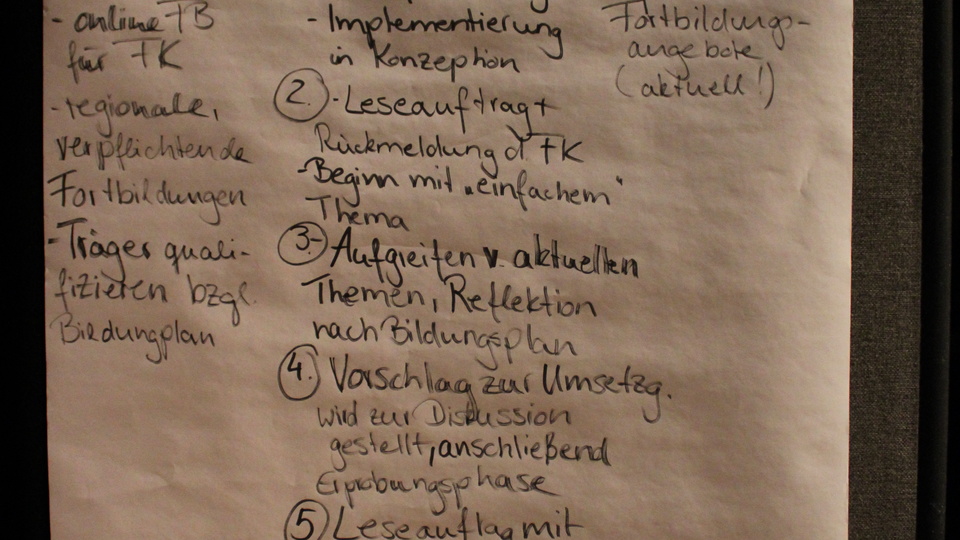 - online FB
für FK
- regionale,
verpflichtende
Fortbildungen
- Träger quali-
fizieren bzgl.
Bildungplan
- Implementierung
in Konzeption
2. - Leseauftrag +
Rückmeldung d. FK
- Beginn mit „einfachem"
Thema
3. - Aufgreifen v. aktuellen
Themen, Reflektion
nach Bildungsplan
4. Vorschlag zur Umsetzg.
wird zur Diskussion
gestellt, anschließend
Erprobungsphase
5 Leseauftag mit
Fortbildungs-
angebote
(aktuell!)